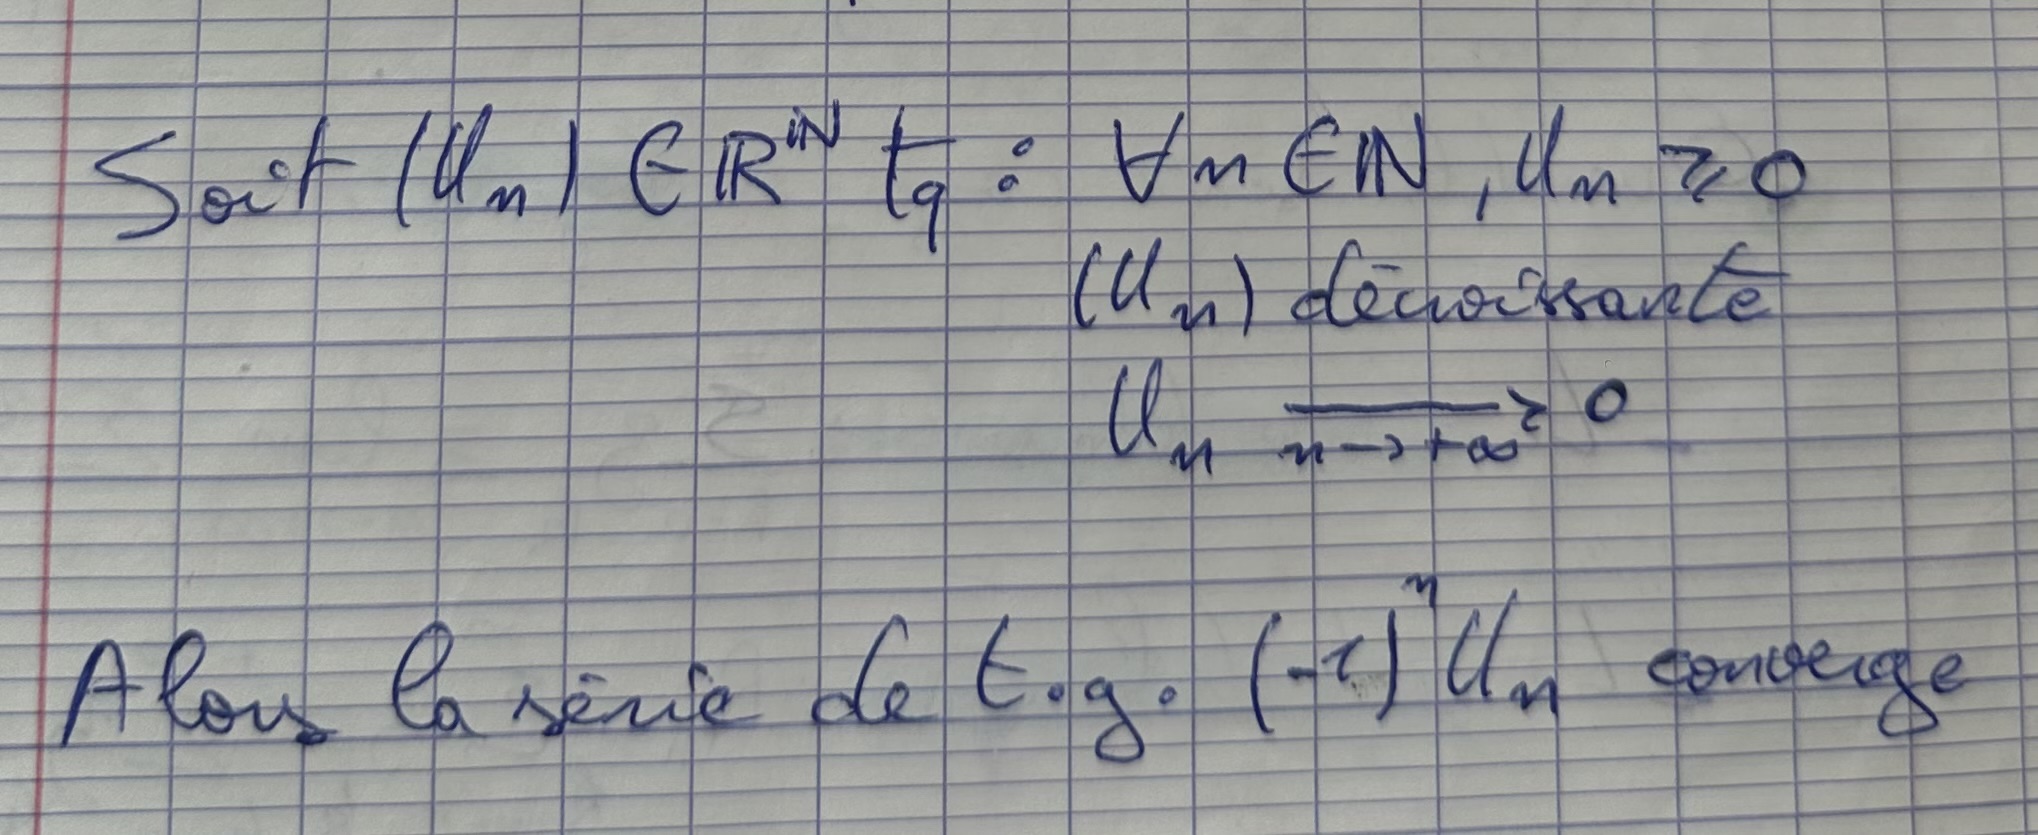 Soit (Un) ∈ ℝ^ℕ tq : ∀n ∈ ℕ, Un ⩾ 0
(Un) décroissante
Un ⟶ 0 n→+∞
Alors la série de t.g. (-1)^n Un converge